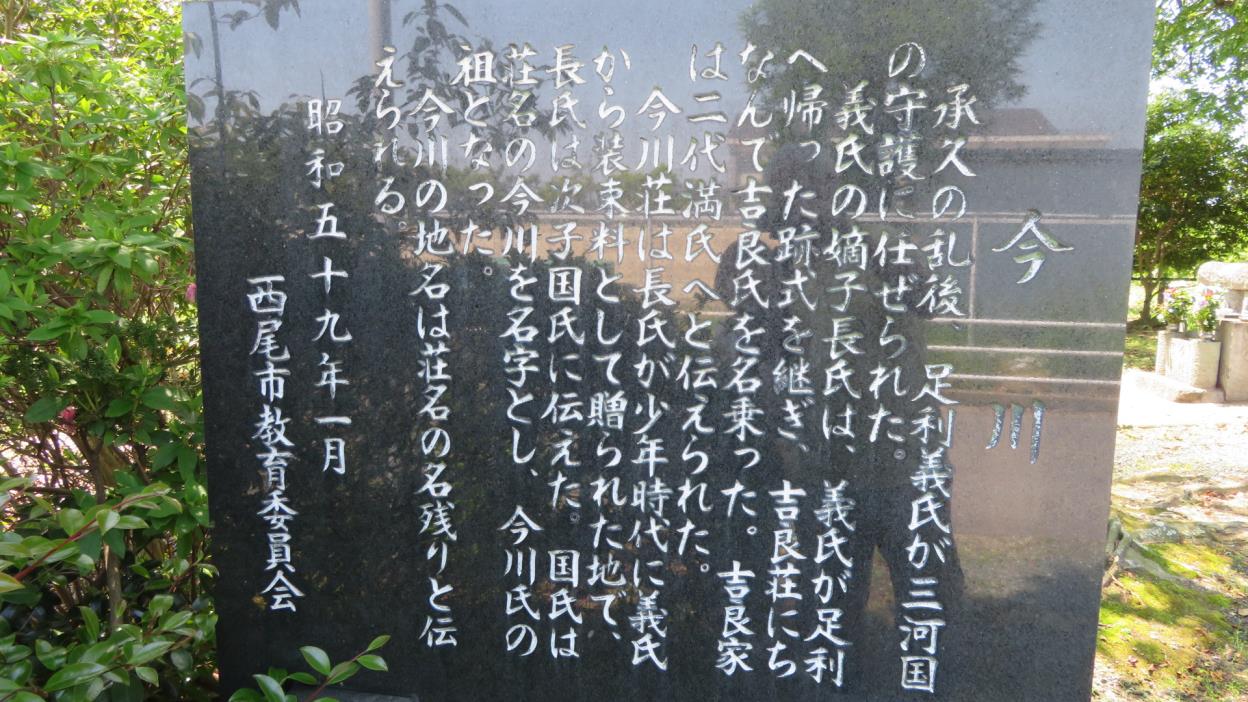 今川
承久の乱後、足利義氏が三河国
の守護に任ぜられた。
義氏の嫡子長氏は、義氏が足利
へ帰った跡式を継ぎ、吉良荘にち
なんで吉良氏を名乗った。吉良家
は二代満氏へと伝えられた。
今川荘は長氏が少年時代に義氏
から装束料として贈られた地で、
長氏は次子国氏に伝えた。国氏は
荘名の今川を名字とし、今川氏の
祖となった。
今川の地名は荘名の名残りと伝
えられる。
昭和五十九年一月
西尾市教育委員会